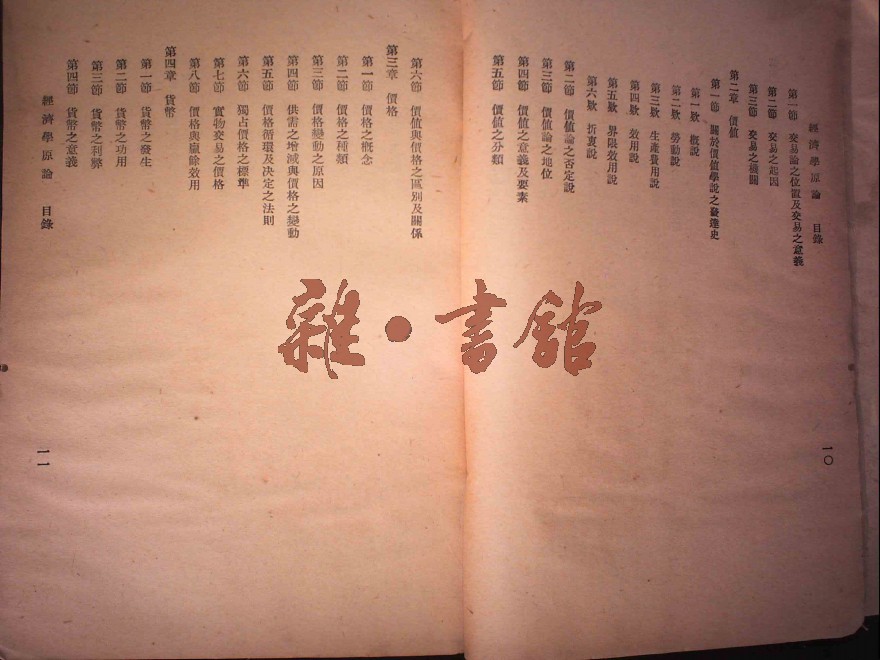 經濟學原論　目錄
第一節　交易論之位置及交易之意義
第二節　交易之起因
第三節　交易之機關
第二章　價值
第一節　關於價值學說之發達史
第一欵　概說
第二欵　勞動說
第三欵　生產費用說
第四欵　效用說
第五欵　界限效用說
第六欵　折衷說
第二節　價值論之否定說
第三節　價值論之地位
第四節　價值之意義及要素
第五節　價值之分類
一〇
第六節　價值與價格之區別及關係
第三章　價格
第一節　價格之概念
第二節　價格之種類
第三節　價格變動之原因
第四節　供需之增減與價格之變動
第五節　價格循環及決定之法則
第六節　獨占價格之標準
第七節　實物交易之價格
第八節　價格與贏餘效用
第四章　貨幣
第一節　貨幣之發生
第二節　貨幣之功用
第三節　貨幣之利弊
第四節　貨幣之意義
經濟學原論　目錄
一一
雜·書館